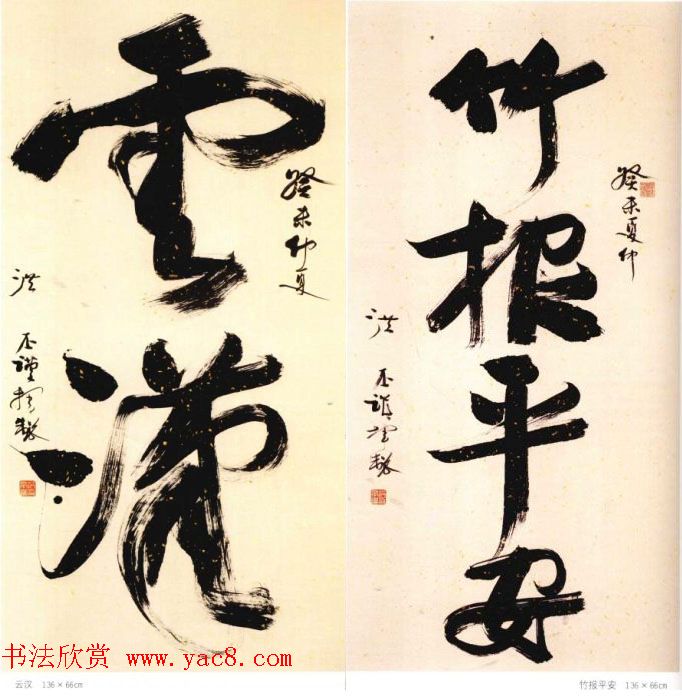 雲漢
癸未仲夏
洪丕謨揮毫
竹报平安
癸未夏仲
洪丕謨揮毫
书法欣赏 www.yac8.com
云汉 136×66cm
竹报平安 136×66cm